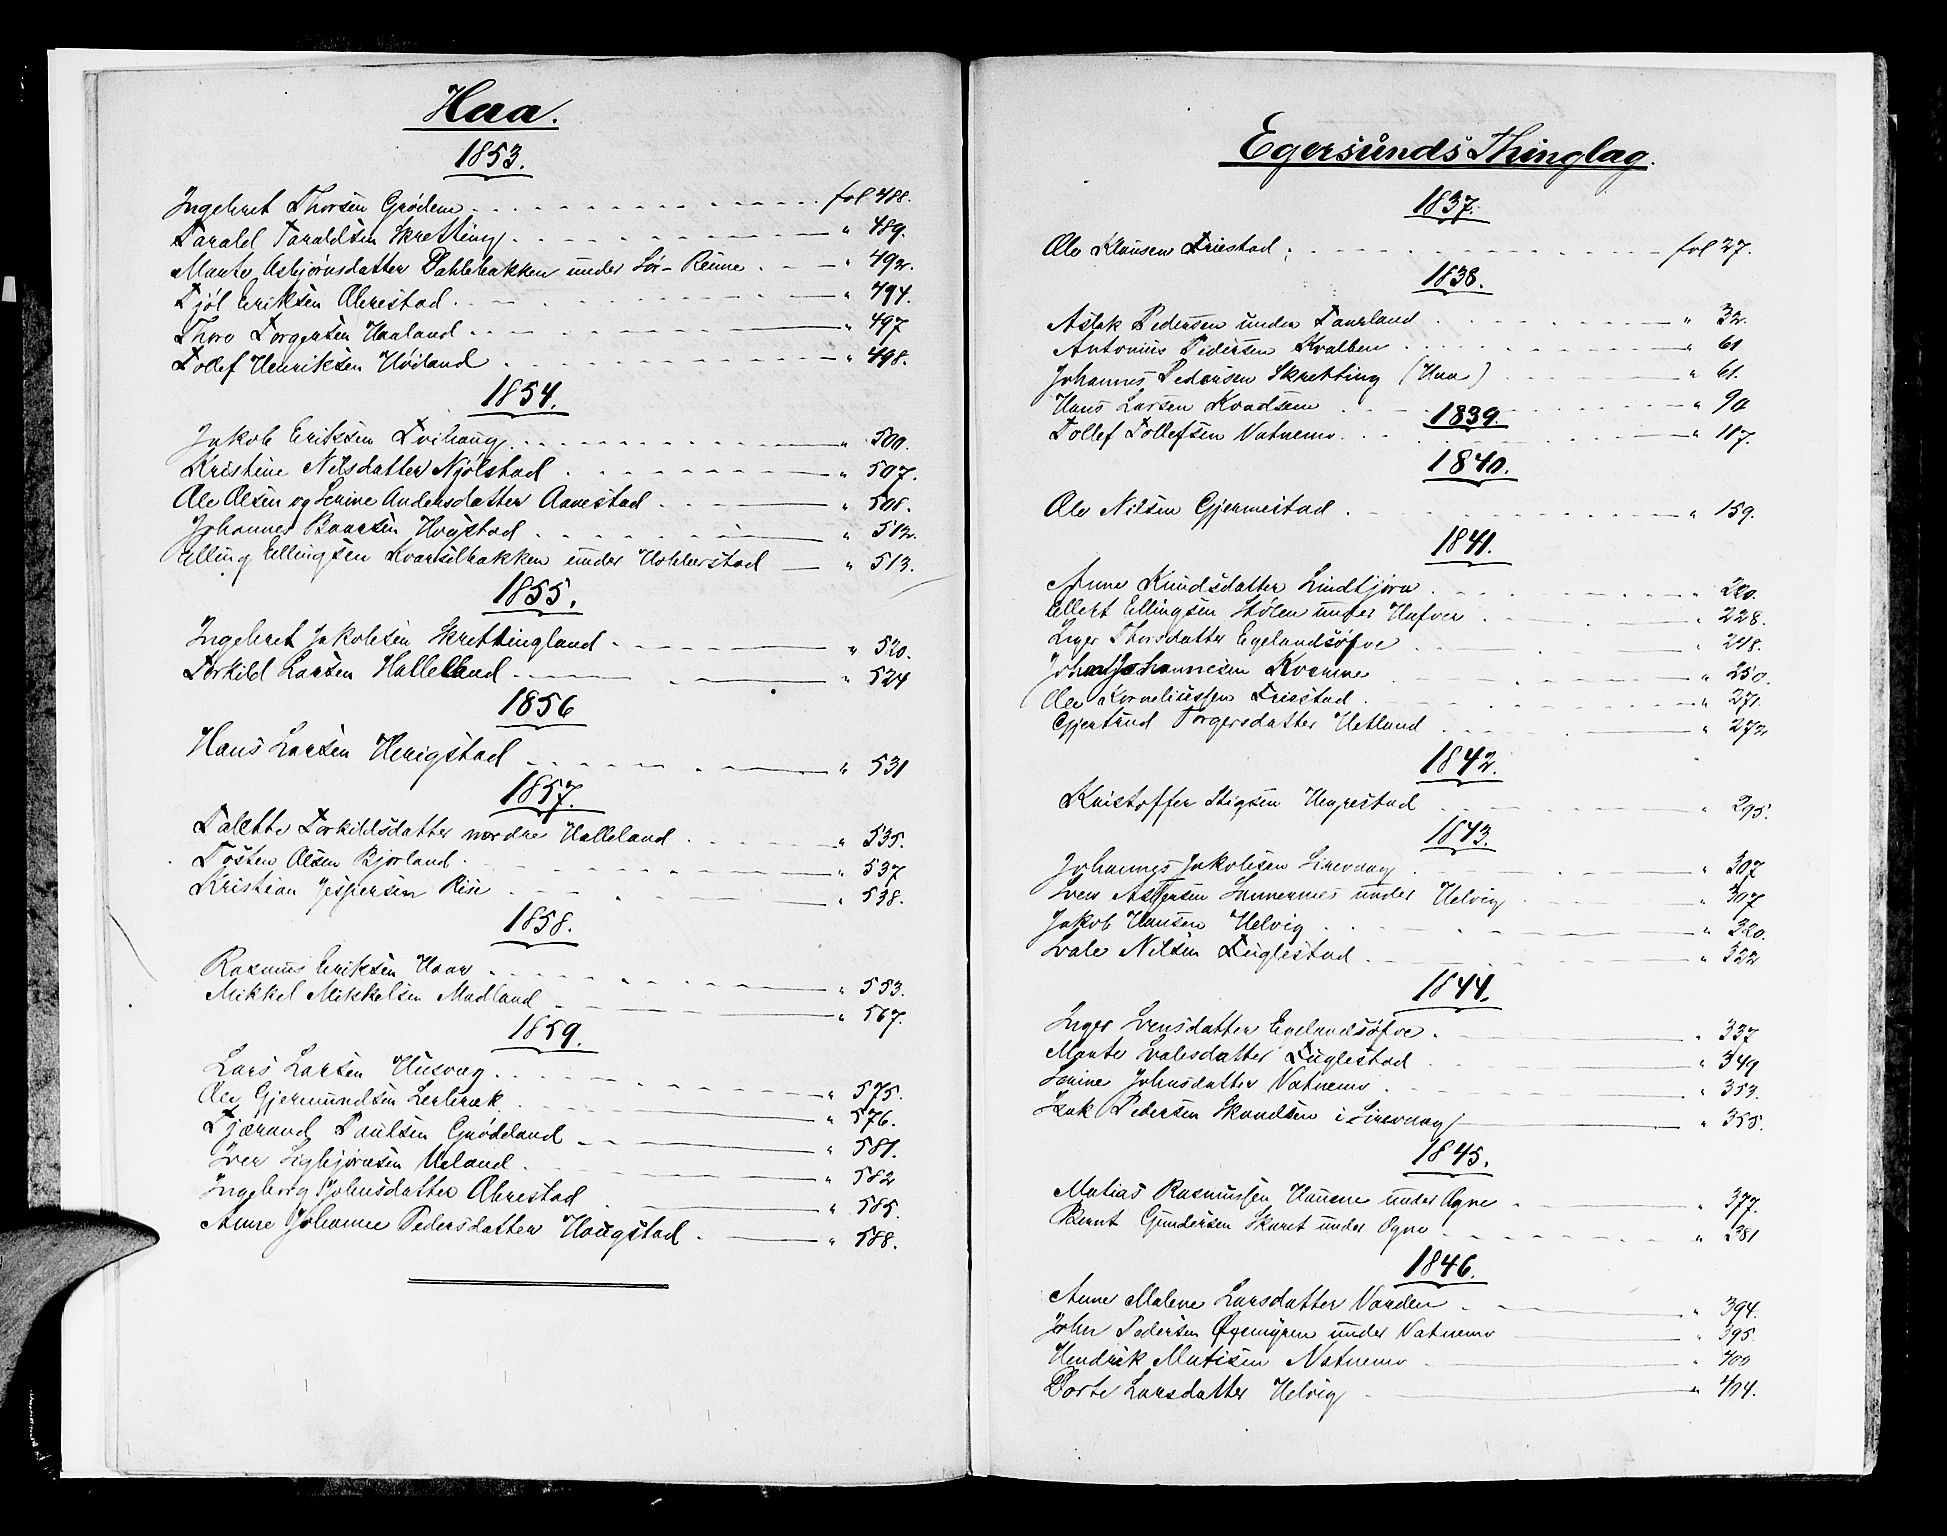 Haa.
1853.
Ingebret Thorsen Grødem fol 488.
Tarald Taraldsen Skretting " 489.
Mante Asbjørnsdatter Dahlebakken under Sør-Reime " 492.
Tjøl Eriksen Obrestad " 494.
Thore Torgersen Haaland " 497
Tollef Henriksen Høiland " 498.
1854.
Jakob Eriksen Tvihaug " 500.
Kristine Nilsdatter Njølstad " 507.
Ole Olsen og Serine Andersdatter Aanestad " 508.
Johannes Baarsen Hogstad " 512.
Elling Ellingsen Kvarsilbakken under Hobberstad " 513.
1855.
Ingebret Jakobsen Skrettingland " 520.
Torkild Larsen Halleland " 524
1856
Hans Larsen Herigstad " 531
1857.
Talette Torkildsdatter nordre Halleland " 535.
Tosten Olsen Bjorland " 537
Kristian Jespersen Rise " 538.
1858.
Rasmus Eriksen Haar " 553.
Mikkel Mikkelsen Madland " 567.
1859.
Lars Larsen Husvæg " 575.
Ole Gjermundsen Lerbræk " 576.
Tjærand Paulsen Grødeland " 581.
Iver Sigbjørnsen Ueland " 582
Ingeborg Johnsdatter Obrestad " 585.
Anne Johanne Pedersdatter Haugstad " 588.
Egersunds Thinglag.
1837.
Ole Klausen Friestad fol 27.
1838.
Aslak Pedersen under Taarland " 32.
Antonius Pedersen Kvalben " 61
Johannes Pedersen Skretting (Haa) " 61.
Hans Larsen Kvadsem " 90
1839.
Tollef Tollefsen Vatnemo " 117.
1840.
Ole Nilsen Gjermestad " 159.
1841.
Anne Knudsdatter Lindtjørn " 220.
Ellert Ellingsen Stølen under Hafver " 228.
Inger Thorsdatter Egelandsøfve " 248.
Johan Johannesen Kvernme " 250.
Ole Korneliussen Friestad " 271.
Gjertrud Torgersdatter Hetland " 272
1842.
Kristoffer Stigsen Hegrestad " 295.
1843.
Johannes Jakobsen Sirevaag " 307
Sven Asgersen Sunnernes under Helvig " 307
Jakob Hansen Helvig " 320.
Svale Nilsen Fuglestad " 322
1844.
Inger Svensdatter Egelandsøfve " 337
Mante Svalesdatter Fuglestad " 349
Serine Johnsdatter Vatnemo " 353.
Isak Pedersen Skandsen i Sirevaag " 355.
1845.
Matias Rasmussen Hauene under Ogne " 377.
Bernt Gundersen Skaret under Ogne " 381
1846.
Anne Malene Larsdatter Varden " 394.
John Pedersen Øyemyren under Vatnemo " 395.
Hendrik Matisen Vatnemo " 400
Dorte Larsdatter Helvig " 404.